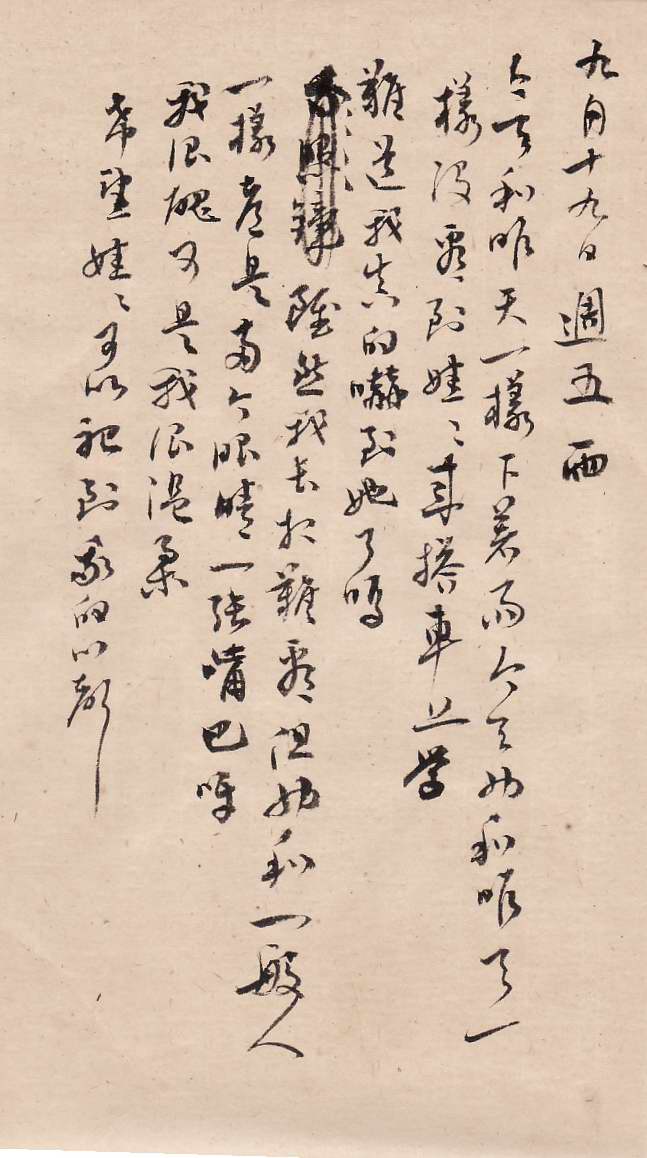 九月十九日週五雨
今天和昨天一樣下著雨今天也和昨天一
樣沒看到娃娃來搭車上學
難道我真的嚇到她了嗎
雖然我長相難看但也和一般人
一樣都是兩个眼睛一張嘴巴呀
我很醜可是我很溫柔
希望娃娃可以聽到我的心聲